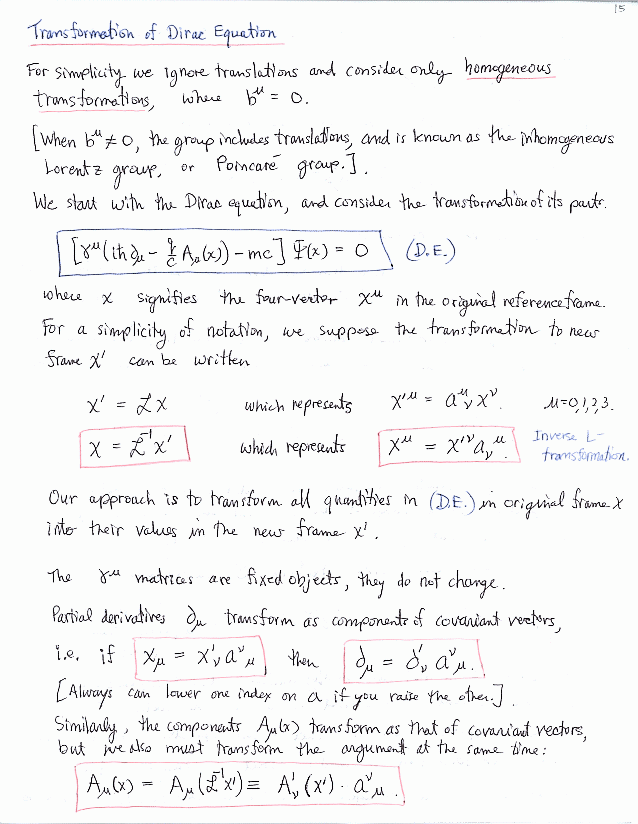 15
Transformation of Dirac Equation
For simplicity we ignore translations and consider only homogeneous
transformations, where b^μ = 0.
[When b^μ ≠ 0, the group includes translations, and is known as the inhomogeneous
Lorentz group, or Poincaré group.].
We start with the Dirac equation, and consider the transformation of its parts.
[γ^μ(iħ∂_μ - q/c A_μ(x)) - mc] Ψ(x) = 0 (D.E.)
where x signifies the four-vector x^μ in the original reference frame.
For a simplicity of notation, we suppose the transformation to new
frame x' can be written
x' = ℒx which represents x'^μ = a^μ_ν x^ν. μ=0,1,2,3.
x = ℒ^-1 x' which represents x^μ = x'^ν a_ν^μ. Inverse L-
transformation.
Our approach is to transform all quantities in (D.E.) in original frame x
into their values in the new frame x'.
The γ^μ matrices are fixed objects, they do not change.
Partial derivatives ∂_μ transform as components of covariant vectors,
i.e. if x_μ = x'_ν a^ν_μ then ∂_μ = ∂'_ν a^ν_μ.
[Always can lower one index on a if you raise the other.]
Similarly, the components A_μ(x) transform as that of covariant vectors,
but we also must transform the argument at the same time:
A_μ(x) = A_μ(ℒ^-1 x') ≡ A'_ν(x') · a^ν_μ.